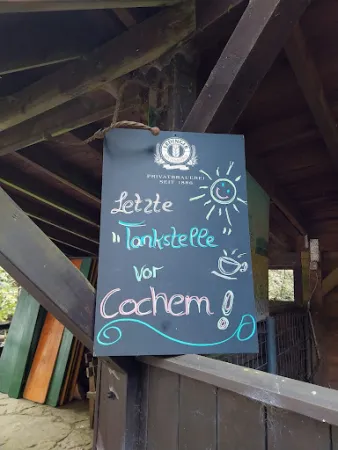 PRIVATBRAUEREI
SEIT 1886
Letzte
"Tankstelle
vor
Cochem!